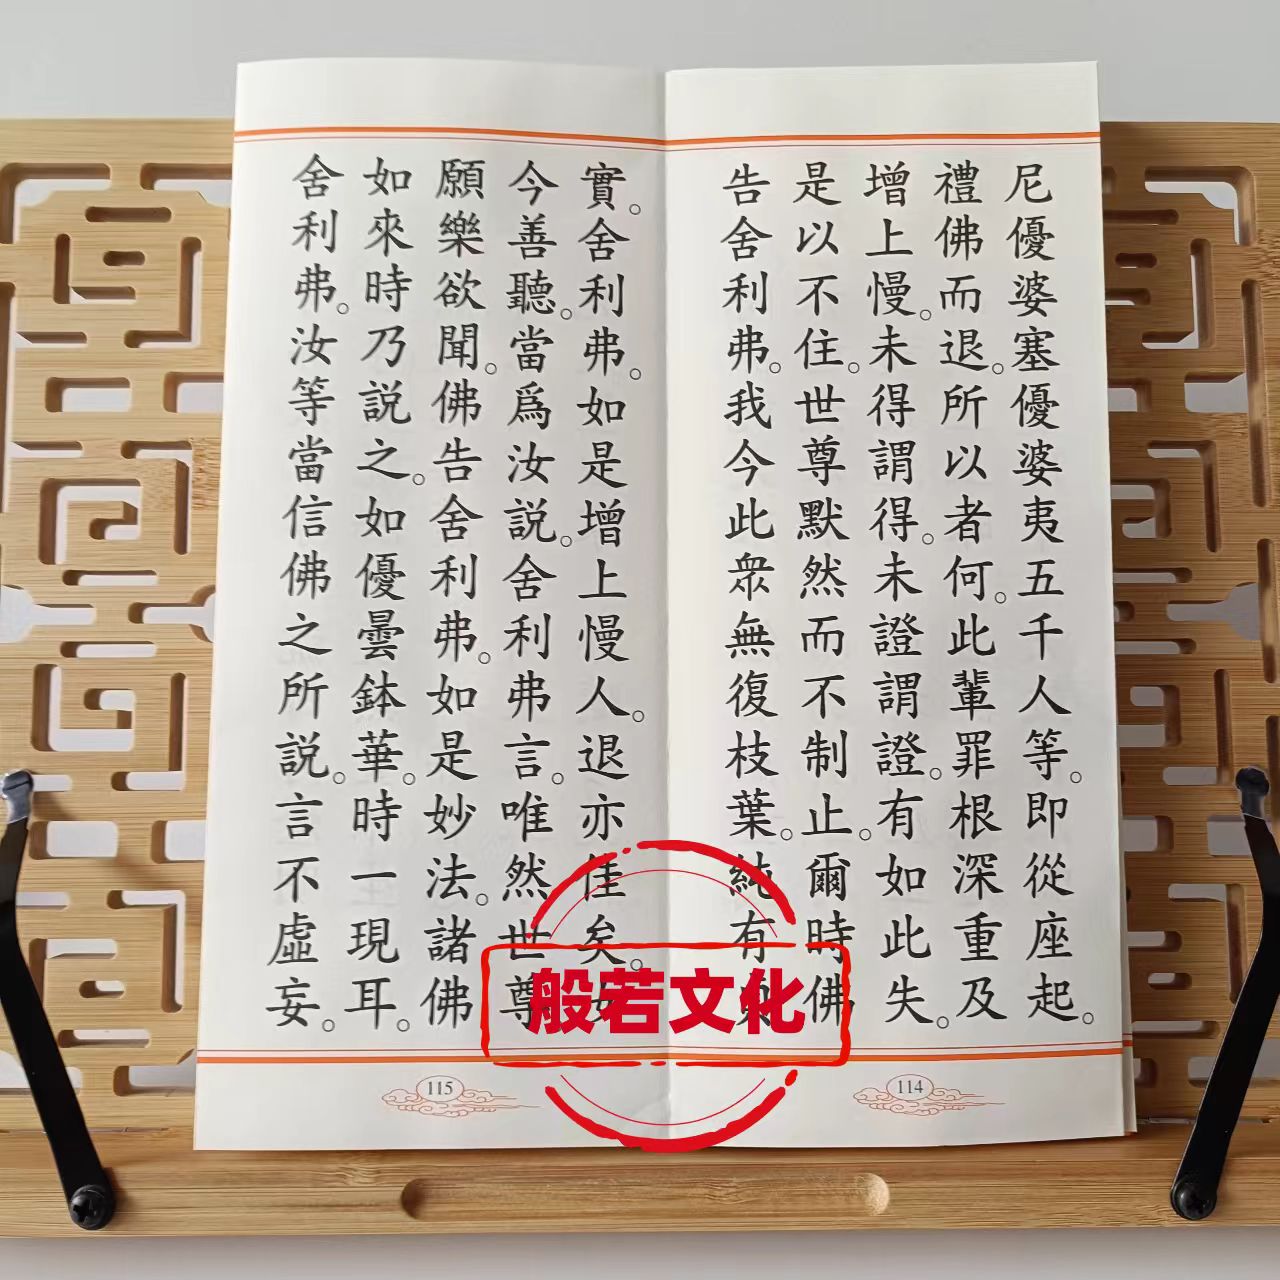 尼優婆塞優婆夷五千人等。即從座起。
禮佛而退。所以者何。此輩罪根深重及
增上慢。未得謂得。未證謂證。有如此失。
是以不住。世尊默然而不制止。爾時佛
告舍利弗。我今此眾無復枝葉。純有
114
實。舍利弗。如是增上慢人。退亦佳矣。
今善聽。當爲汝說。舍利弗言。唯然世尊
願樂欲聞。佛告舍利弗。如是妙法。諸佛
如來時乃說之。如優曇鉢華。時一現耳。
舍利弗。汝等當信佛之所說。言不虛妄。
115
般若文化